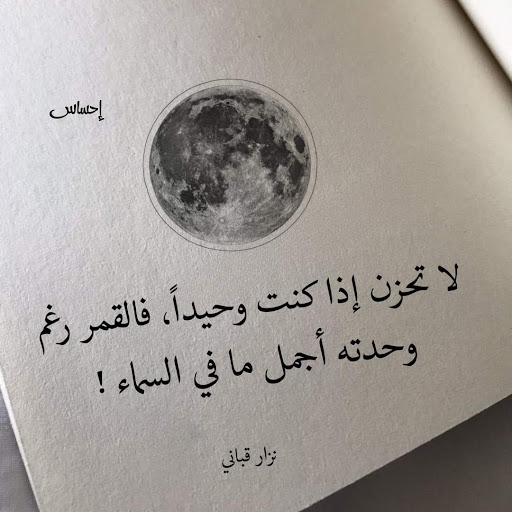 إحساس
لا تحزن إذا كنت وحيداً، فالقمر رغم
وحدته أجمل ما في السماء !
نزار قباني